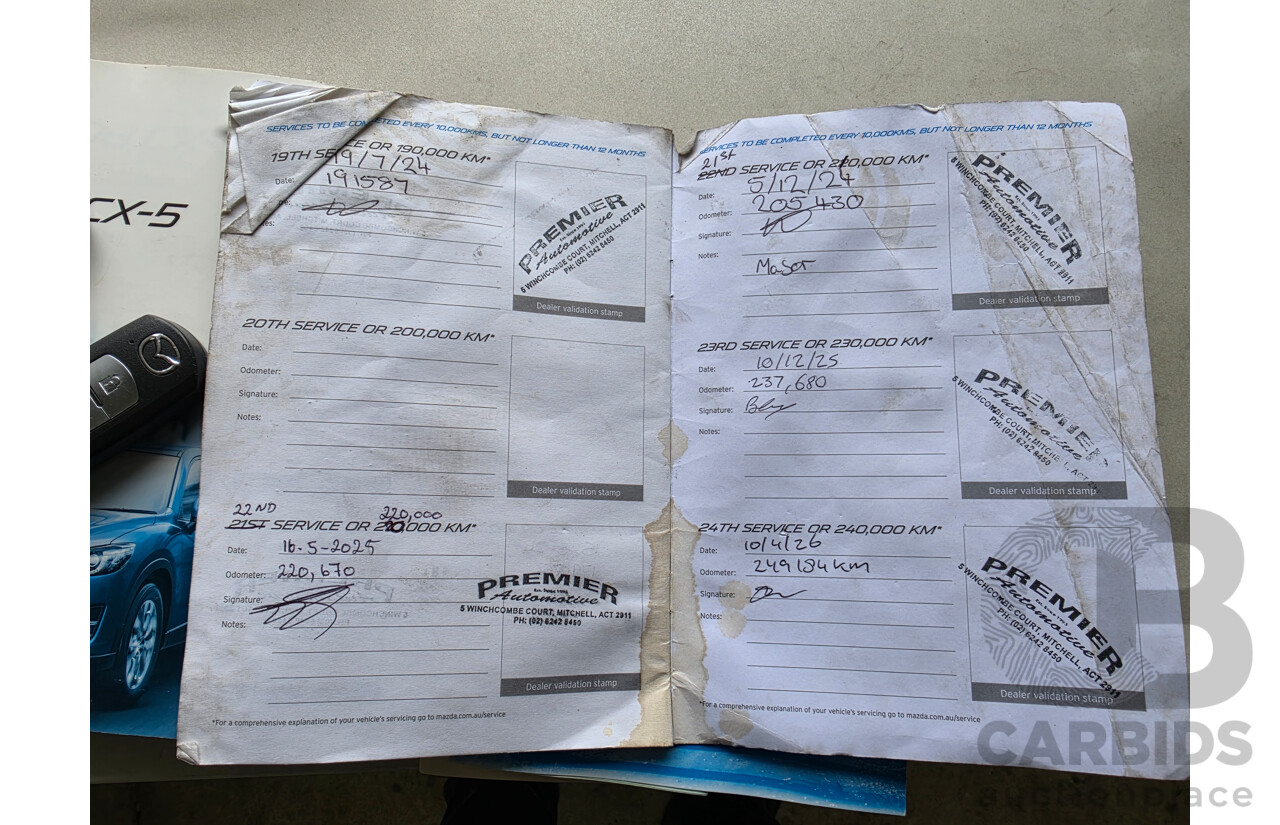 CX-5
SERVICES TO BE COMPLETED EVERY 10,000KMS, BUT NOT LONGER THAN 12 MONTHS
19TH SERVICE OR 190,000 KM*
Date: 19/7/24
191587
PREMIER
Automotive
5 WINCHCOMBE COURT, MITCHELL, ACT 2911
PH: (02) 6242 8450
Dealer validation stamp
20TH SERVICE OR 200,000 KM*
Date:
Odometer:
Signature:
Notes:
Dealer validation stamp
22ND 220,000
21ST SERVICE OR 000 KM*
Date: 16-5-2025
Odometer: 220,670
Signature:
Notes:
PREMIER
Est. Since 1996
Automotive
5 WINCHCOMBE COURT, MITCHELL, ACT 2911
PH: (02) 6242 8450
Dealer validation stamp
*For a comprehensive explanation of your vehicle's servicing go to mazda.com.au/service
SERVICES TO BE COMPLETED EVERY 10,000KMS, BUT NOT LONGER THAN 12 MONTHS
21st
22ND SERVICE OR 210,000 KM*
Date: 5/12/24
Odometer: 205430
Signature:
Notes:
Major
PREMIER
Automotive
5 WINCHCOMBE COURT, MITCHELL, ACT 2911
PH: (02) 6242 8450
Dealer validation stamp
23RD SERVICE OR 230,000 KM*
Date: 10/12/25
Odometer: 237,680
Signature:
Notes:
PREMIER
Automotive
5 WINCHCOMBE COURT, MITCHELL, ACT
PH: (02) 6242 8450
Dealer validation stamp
24TH SERVICE OR 240,000 KM*
Date: 10/4/26
Odometer: 249184km
Signature:
Notes:
PREMIER
Automotive
5 WINCHCOMBE COURT, MITCHELL, ACT 2911
PH: (02) 6242 8450
Dealer validation stamp
*For a comprehensive explanation of your vehicle's servicing go to mazda.com.au/service
B
CARBIDS
auctionplace